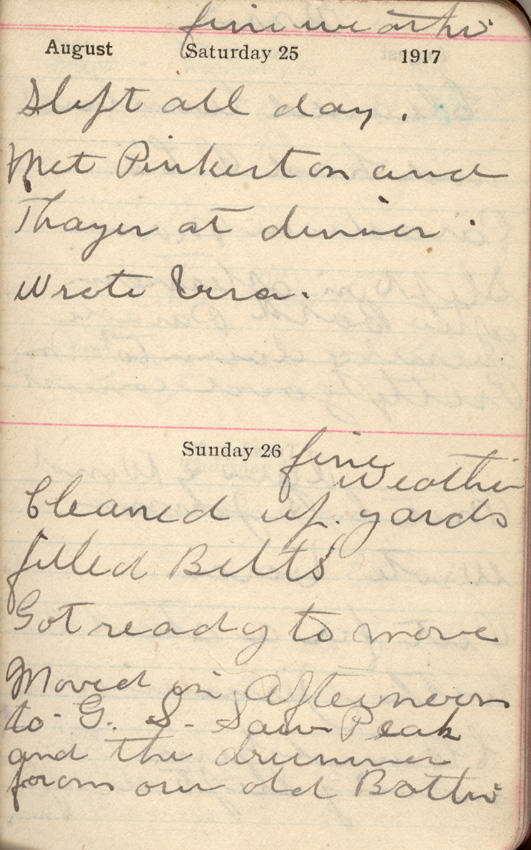 fine weather
August Saturday 25 1917
Slept all day.
Met Pinkerton and
Thayer at dinner.
Wrote Vera.
Sunday 26 fine
Weather
Cleaned up. yards
filled Belts
Got ready to move
Moved in Afternoon
to G. S. Saw Peak
and the drummer
from our old Batty